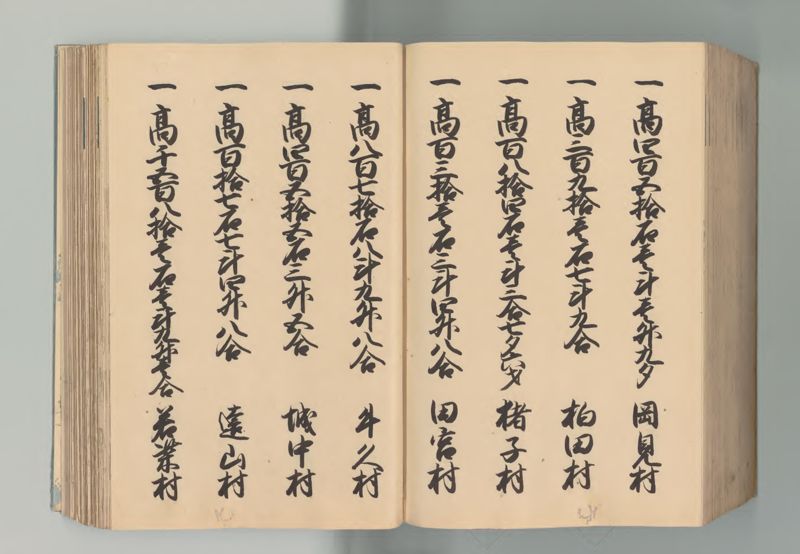 一高四百五拾石壱斗壱升九夕 岡見村
一高三百九拾壱石七斗九合 柏田村
一高百八拾四石壱斗三合七夕六才 猪子村
一高百三拾壱石三斗四升八合 田宮村
一高八百七拾石八斗九升八合 牛久村
一高四百五拾五石三升五合 城中村
一高百拾七石七斗四升八合 遠山村
一高千五百八拾壱石壱斗九升壱合 若柴村